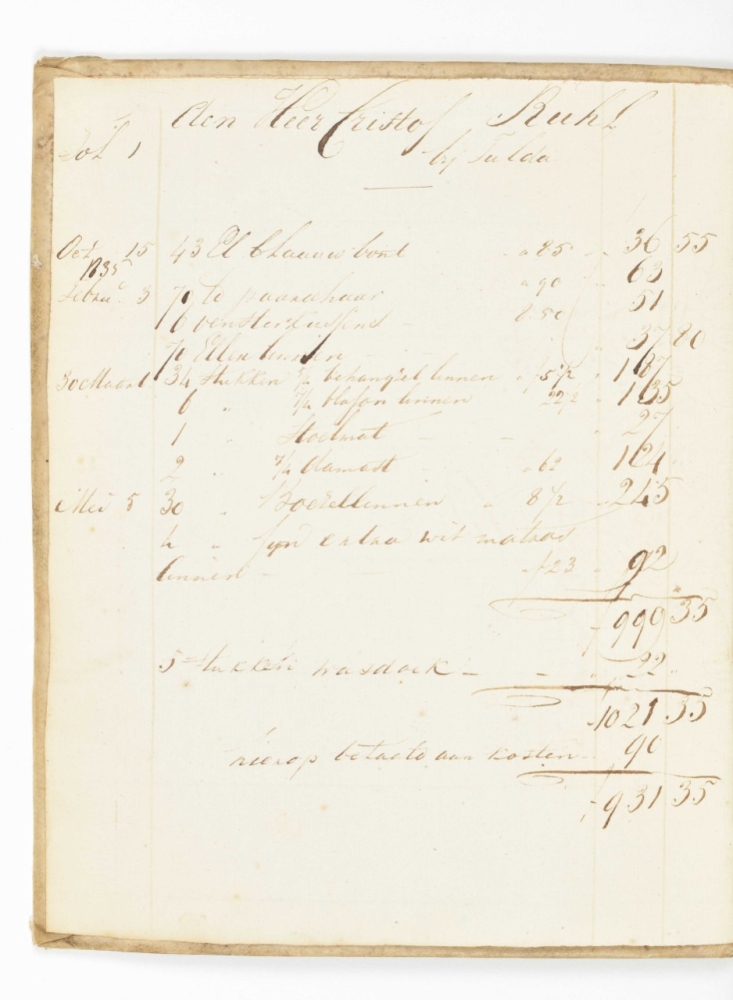 den Heer Cristof Ruhl
fol 1 bij Fulda
Oct 15 43 El blaauw bont " 85 " 36 55
1835
Febru 3 70 te paardehaar " 90 " 63
6 2.80 51
70 Ellen linnen " 37 80
30 Maart 34 Stukken behangsel linnen 5½ " 187
6 " linnen 22½ " 135
1 " Stoelmat - - " 27
2 " 7/4 damast " 62 " 124
Mei 5 30 " Boedellinnen " 8½ " 245
4 " fyn extra wit matras
linnen - " f23 " 92
f 990 35
5 Stukken wasdoek - - " 22 "
f 1021 35
hierop betaald aan kosten - 90
f 931 35